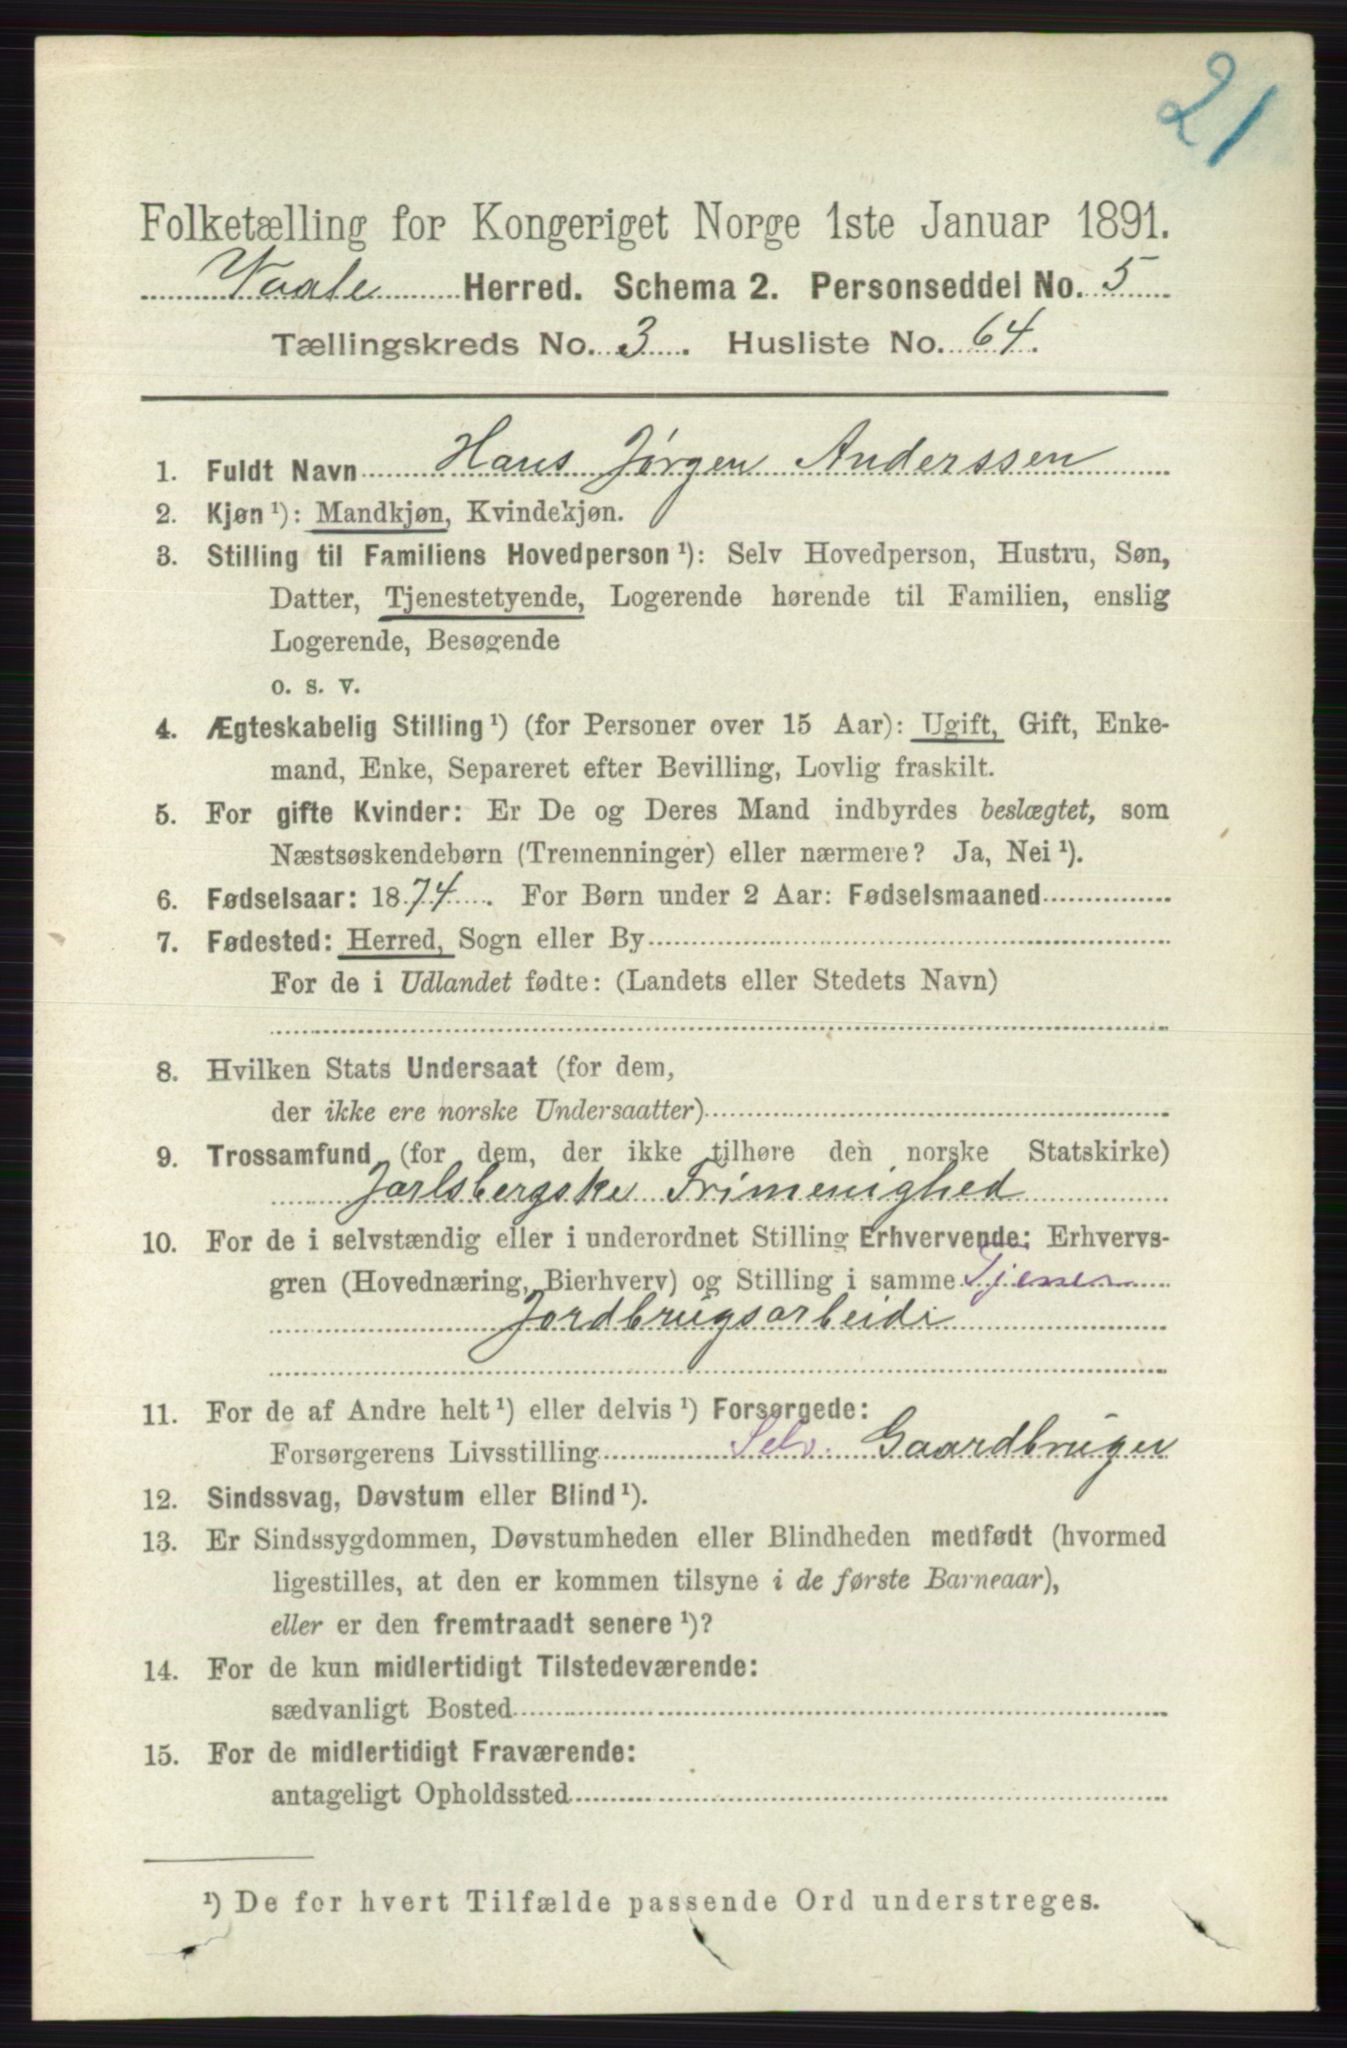 21
Folketælling for Kongeriget Norge 1ste Januar 1891.
Vaale Herred. Schema 2. Personseddel No. 5
Tællingskreds No. 3. Husliste No. 64.
1. Fuldt Navn Hans Jørgen Anderssen
2. Kjøn ¹): Mandkjøn, Kvindekjøn.
3. Stilling til Familiens Hovedperson ¹): Selv Hovedperson, Hustru, Søn,
Datter, Tjenestetyende, Logerende hørende til Familien, enslig
Logerende, Besøgende
o. s. v.
4. Ægteskabelig Stilling ¹) (for Personer over 15 Aar): Ugift, Gift, Enke-
mand, Enke, Separeret efter Bevilling, Lovlig fraskilt.
5. For gifte Kvinder: Er De og Deres Mand indbyrdes beslægtet, som
Næstsøskendebørn (Tremenninger) eller nærmere? Ja, Nei ¹).
6. Fødselsaar: 1874. For Børn under 2 Aar: Fødselsmaaned
7. Fødested: Herred, Sogn eller By
For de i Udlandet fødte: (Landets eller Stedets Navn)
8. Hvilken Stats Undersaat (for dem,
der ikke ere norske Undersaatter)
9. Trossamfund (for dem, der ikke tilhøre den norske Statskirke)
Jarlsbergske Frimenighed
10. For de i selvstændig eller i underordnet Stilling Erhvervende: Erhvervs-
gren (Hovednæring, Bierhverv) og Stilling i samme Tjener
Jordbrugsarbeide
11. For de af Andre helt ¹) eller delvis ¹) Forsørgede:
Forsørgerens Livsstilling Selv. Gaardbruger
12. Sindssvag, Døvstum eller Blind ¹).
13. Er Sindssygdommen, Døvstumheden eller Blindheden medfødt (hvormed
ligestilles, at den er kommen tilsyne i de første Barneaar),
eller er den fremtraadt senere ¹)?
14. For de kun midlertidigt Tilstedeværende:
sædvanligt Bosted
15. For de midlertidigt Fraværende:
antageligt Opholdssted
¹) De for hvert Tilfælde passende Ord understreges.